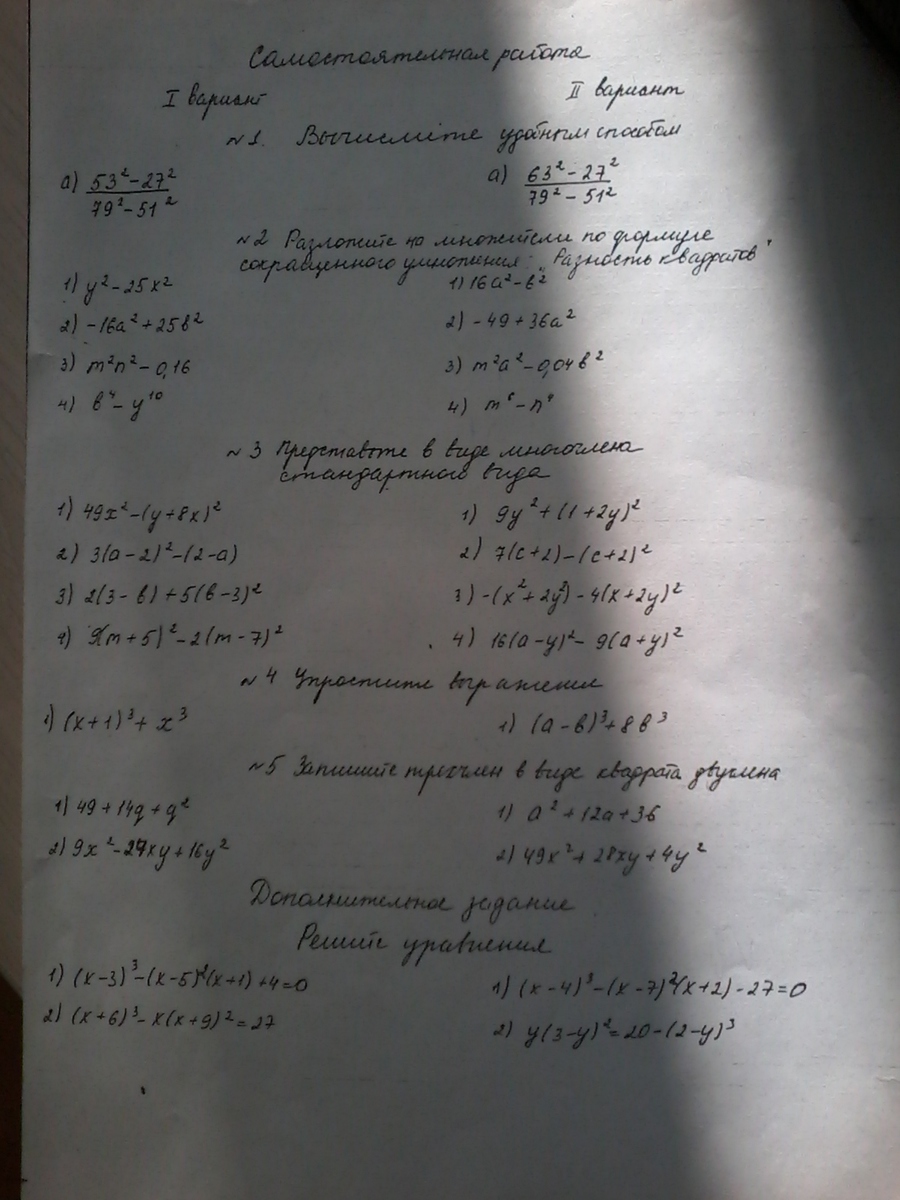 Самостоятельная работа
I вариант II вариант
№1. Вычислите удобным способом
а) (53² - 27²)/(79² - 51²) а) (63² - 27²)/(79² - 51²)
№2 Разложите на множители по формуле
сокращенного умножения: „Разность квадратов"
1) y² - 25x² 1) 16a² - b²
2) -16a² + 25b² 2) -49 + 36a²
3) m²n² - 0,16 3) m²a² - 0,04b²
4) b⁴ - y¹⁰ 4) m⁶ - n⁴
№3 Представьте в виде многочлена
стандартного вида
1) 49x² - (y + 8x)² 1) 9y² + (1 + 2y)²
2) 3(a - 2)² - (2 - a) 2) 7(c + 2) - (c + 2)²
3) 2(3 - b) + 5(b - 3)² 3) -(x² + 2y²) - 4(x + 2y)²
4) 9(m + 5)² - 2(m - 7)² 4) 16(a - y)² - 9(a + y)²
№4 Упростите выражения
1) (x + 1)³ + x³ 1) (a - b)³ + 8b³
№5 Запишите трехчлен в виде квадрата двучлена
1) 49 + 14q + q² 1) a² + 12a + 36
2) 9x² - 24xy + 16y² 2) 49x² + 28xy + 4y²
Дополнительное задание
Решите уравнения
1) (x - 3)³ - (x - 5)²(x + 1) + 4 = 0 1) (x - 4)³ - (x - 7)²(x + 2) - 27 = 0
2) (x + 6)³ - x(x + 9)² = 27 2) y(3 - y)² = 20 - (2 - y)³